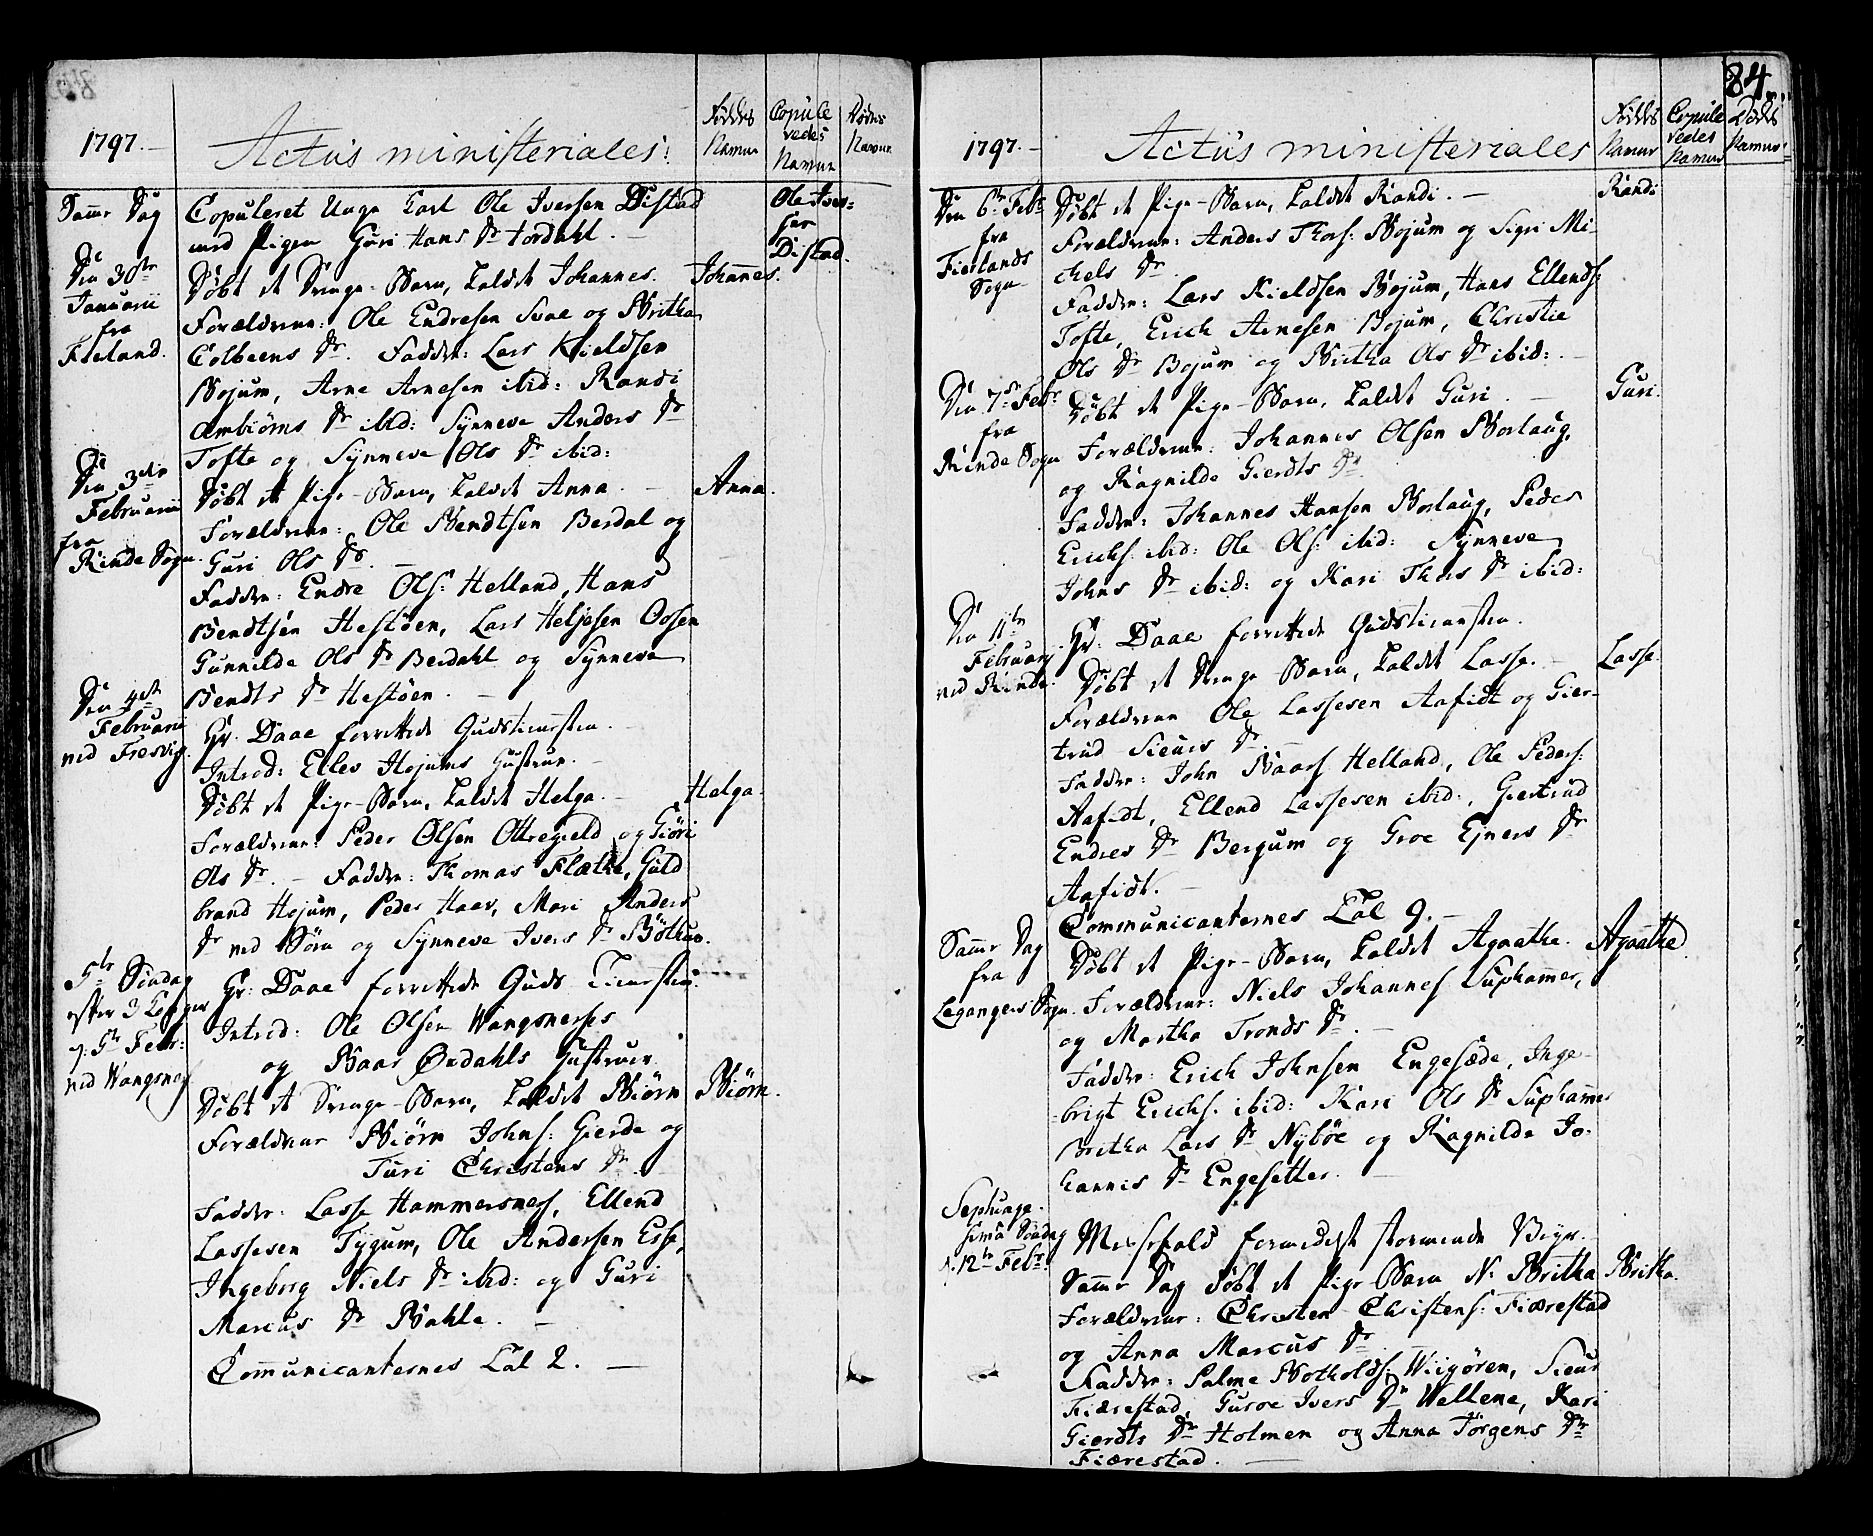 1797.
Actus ministeriales:
Føddes Navne
Copulevedes Navne
Dødes Navne
Samme Dag
Copuleret Unge Karl Ole Iversen Distad
med Pigen Guri Hans Dr Tordahl. —
Ole Iversen Distad.
Den 30te Januarii fra Fieland.
Døbt et Drenge-Barn, kaldet Johannes.
Johannes.
Forældrene: Ole Endresen Svae og Britha
Colbeens Dr. Faddere: Lars Kieldsen
Bojum, Arne Arnesen ibid: Randi
Ambiørns Dr ibid: Synneve Anders Dr
Tofte og Synneve Ols Dr ibid:
Den 3die Februarii fra Rinde Sogn.
Døbt et Pige-Barn, kaldet Anna. —
Anna.
Forældrene: Ole Bendtsen Berdal og
Guri Ols Dr. —
Faddere: Endre Ols: Helland, Hans
Bendtsen Hestøen, Lars Heljesen Ossen
Gunnilde Ols Dr Berdahl og Synneve
Bendts Dr Hestøen. —
Den 4de Februarii ved Fresvig.
Hr: Daae forrettede Gudstienesten. —
Introd: Ellev Hojums Hustrue. —
Døbt et Pige-Barn, kaldet Helga. —
Helga.
Forældrene: Peder Olsen Ottregield og Giøri
Ols Dr. — Faddere: Thomas Flæthe, Guld
brand Hojum, Peder Haav, Mari Anders
Dr ved Søen og Synneve Ivers Dr Bøthun.
5te Søndag efter 3 Konger 5te Febr: ved Wangsnes
Hr: Daae forrettede Guds-Tienesten.
Introd: Ole Olsen Wangsnesses
og Baar Ovdahls Hustruer.
Døbt et Drenge-Barn, kaldet Biørn
Biørn.
Forældrene Biørn Johns: Gierde og
Turi Christens Dr
Faddere: Lasse Hammersnes, Ellend
Lassesen Tygum, Ole Andersen Esse,
Ingeborg Niels Dr ibid: og Guri
Marcus Dr Bahle. —
Communicanternes Tal 2. —
84.
1797. —
Actus ministeriales
Føddes Navne
Copulevedes Navne
Dødes Navne
Den 6te Febr fra Fierlands Sogn
Døbt et Pige-Barn, kaldet Randi. —
Randi
Forældrene: Anders Thors: Bojum og Sigri Mi-
chels Dr
Faddere: Lars Kieldsen Bojum, Hans Ellends:
Tofte, Erich Arnesen Bojum, Christie
Ols Dr Bojum og Britha Ols Dr ibid: —
Den 7de Febr: fra Rinde Sogn
Døbt et Pige-Barn, kaldet Guri. —
Guri.
Forældrene: Johannes Olsen Borlaug,
og Ragnilde Gierdts Dr
Faddere: Johannes Hansen Borlaug, Peder
Erichs: ibid: Ole Ols: ibid: Synneve
Johns Dr ibid: og Kari Thors Dr ibid:
Den 11te Februarii ved Rinde.
Hr: Daae forrettede Gudstienesten.
Døbt et Drenge Barn, kaldet Lasse. —
Lasse.
Forældrene Ole Lassesen Aafidt og Gier-
trud Siurs Dr. —
Faddere: John Baars: Helland, Ole Peders:
Aafidt, Ellend Lassesen ibid:, Giertrud
Endres Dr Bergum og Groe Ejners Dr
Aafidt. —
Communicanternes Tal 9. —
Samme Dag fra Legangers Sogn.
Døbt et Pige-Barn, kaldet Agaathe.
Agaathe.
Forældrene: Niels Johannes Suphamer,
og Martha Tronds Dr. —
Faddere: Erich Johnsen Engesæde, Inge-
brigt Erichs: ibid: Kari Ols Dr Suphamer
Britha Lars Dr Nybøe og Ragnilde Jo-
hannis Dr Engesetter. —
Septuagesima Søndag 12te Febr:
Messefald formedelst stormende Veyr. —
Samme Dag døbt et Pige Barn N. Britha
Britha.
Forældrene: Christen Christens: Fiærestad
og Anna Marcus Dr
Faddere: Salme Botholds: Wiigøren, Siur
Fiærestad, Guroe Ivers Dr Wellene, Kari
Gierdts Dr Holmen og Anna Jørgens Dr
Fiærestad. —